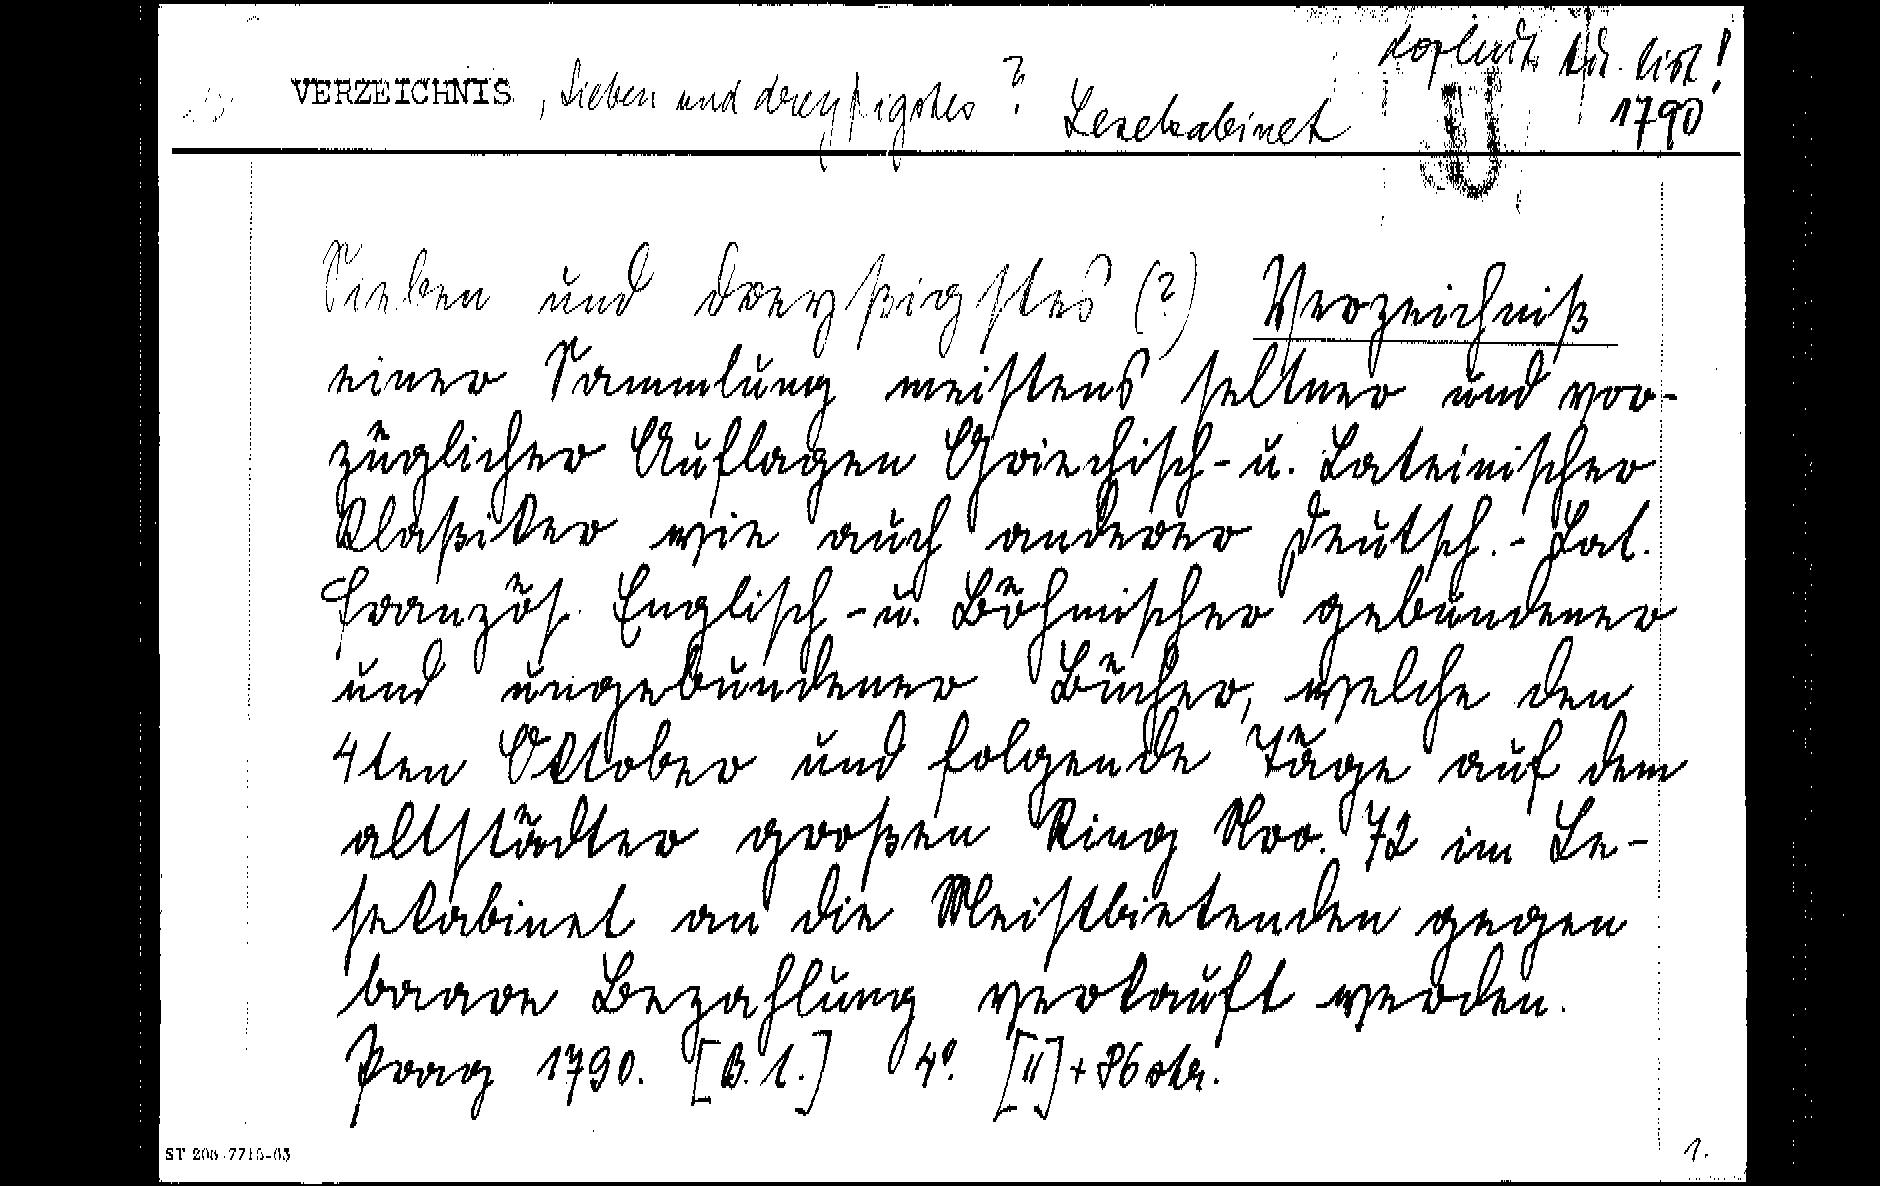 VERZEICHNIS, Sieben und dreyßigstes ? Lesekabinet
tit. list!
1790
U
Sieben und dreyßigstes (?) Verzeichniß
einer Sammlung meistens seltner und vor-
züglicher Auflagen Griechisch- u. Lateinischer
Klaßiker wie auch anderer Deutsch.- Lat.
Französ. Englisch- u. Böhmischer gebundener
und ungebundener Bücher, welche den
4ten Oktober und folgende Täge auf dem
altstädter großen Ring Nro. 72 im Le-
sekabinet an die Meistbietenden gegen
baare Bezahlung verkauft werden.
Prag 1790. [B. t.] 4°. [II] + 86 str.
ST 206 7715-63
1.